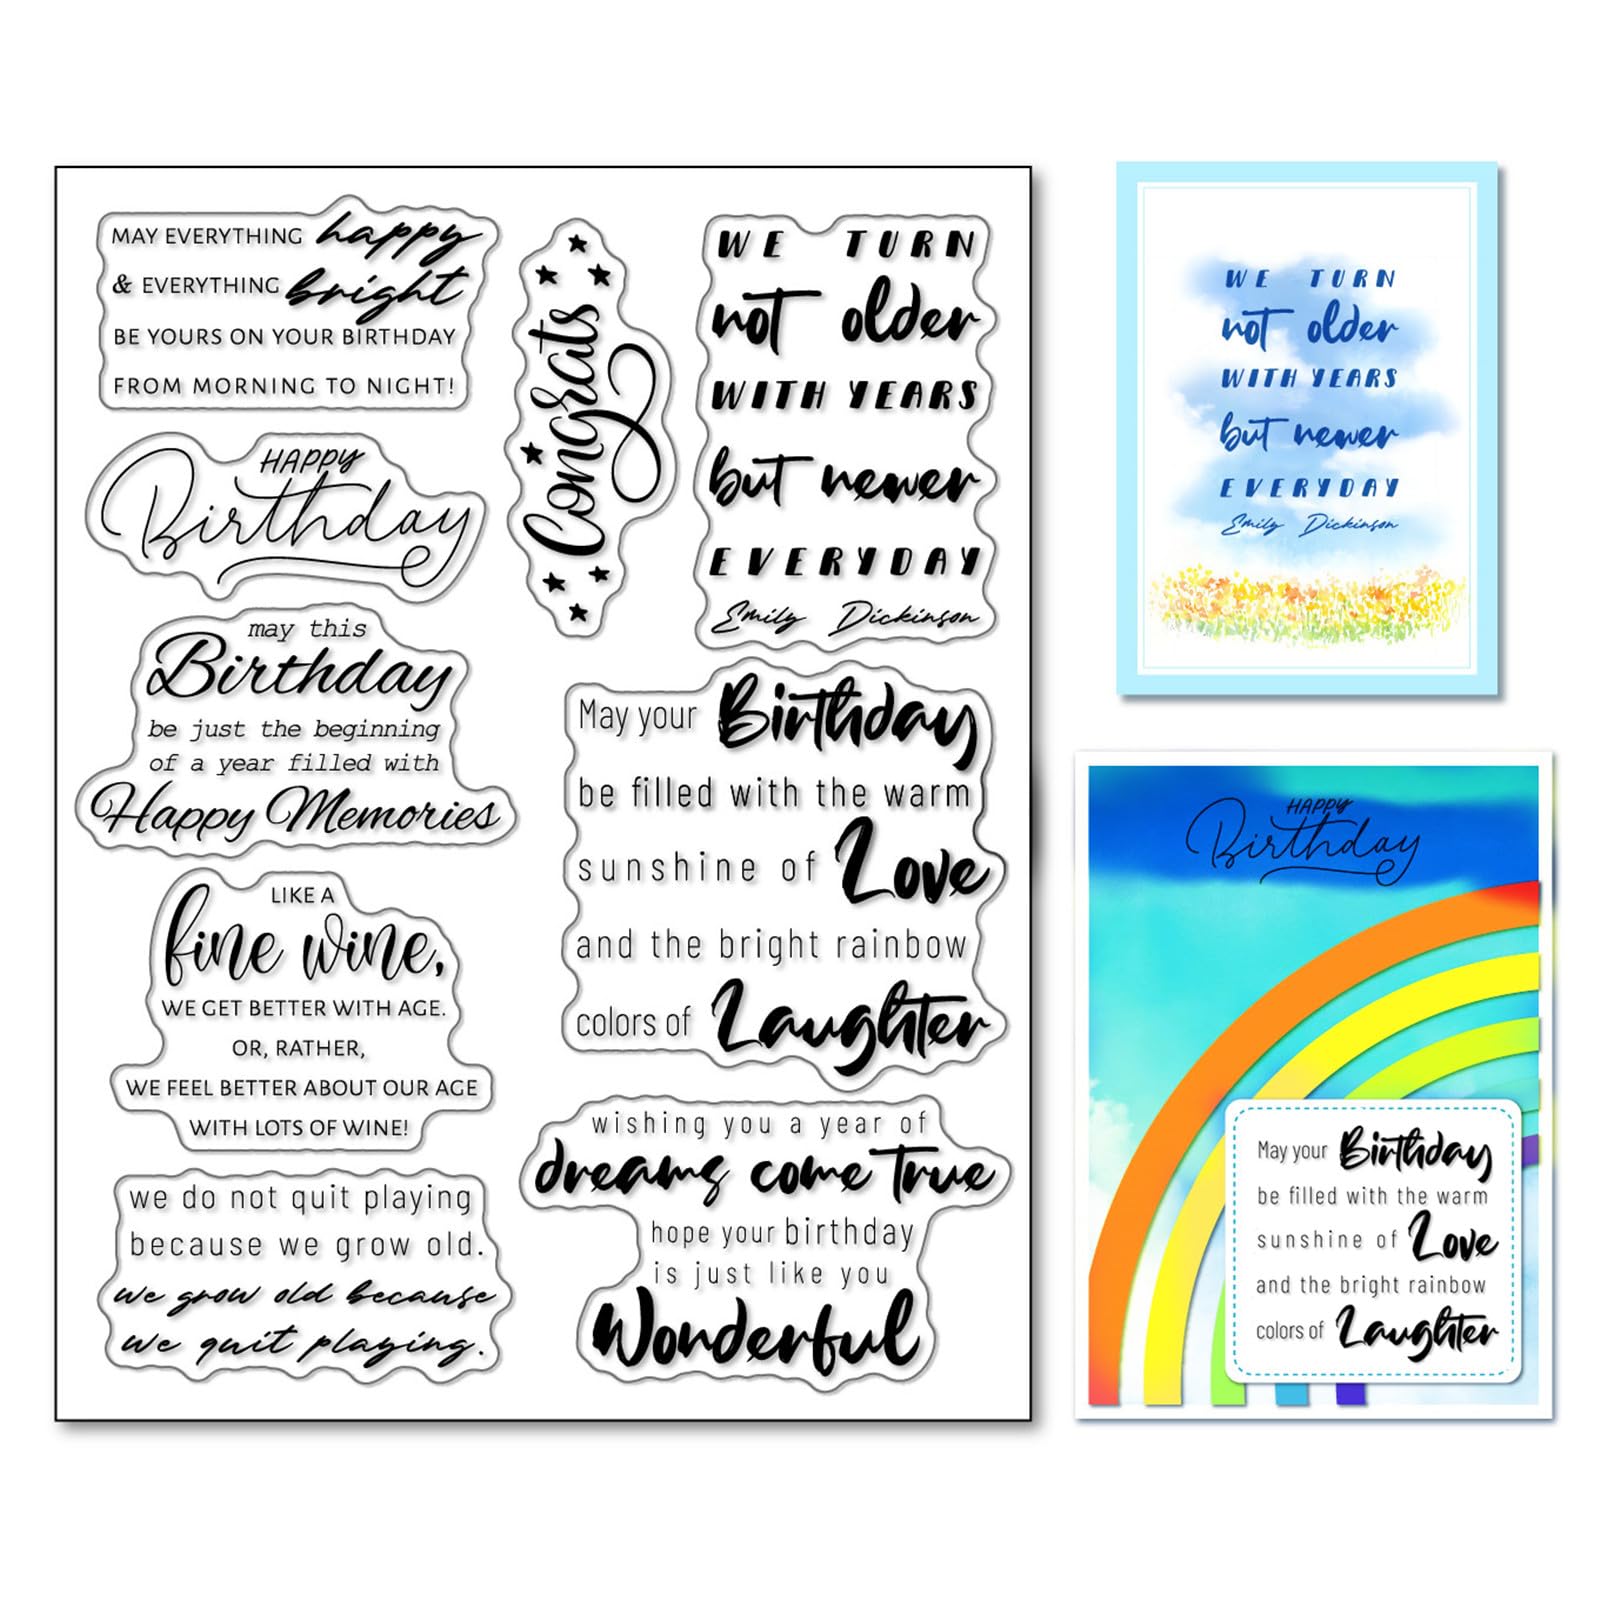 MAY EVERYTHING happy
& EVERYTHING bright
BE YOURS ON YOUR BIRTHDAY
FROM MORNING TO NIGHT!
HAPPY
Birthday
may this
Birthday
be just the beginning
of a year filled with
Happy Memories
LIKE A
fine wine,
WE GET BETTER WITH AGE.
OR, RATHER,
WE FEEL BETTER ABOUT OUR AGE
WITH LOTS OF WINE!
we do not quit playing
because we grow old.
we grow old because
we quit playing.
Congrats
WE TURN
not older
WITH YEARS
but newer
EVERYDAY
Emily Dickinson
May your Birthday
be filled with the warm
sunshine of Love
and the bright rainbow
colors of Laughter
wishing you a year of
dreams come true
hope your birthday
is just like you
Wonderful
WE TURN
not older
WITH YEARS
but newer
EVERYDAY
Emily Dickinson
HAPPY
Birthday
May your Birthday
be filled with the warm
sunshine of Love
and the bright rainbow
colors of Laughter